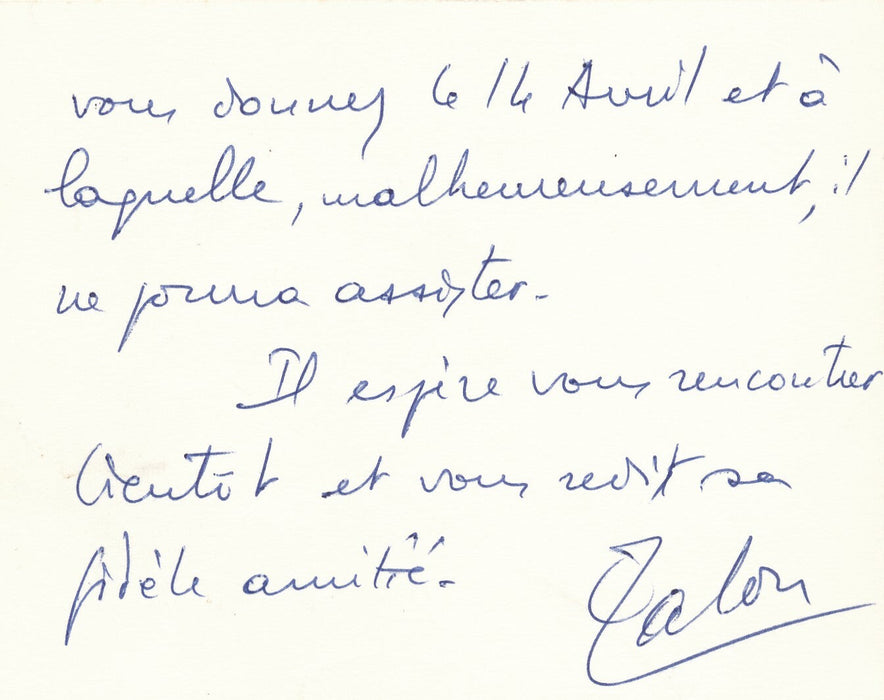 vous donnez le 14 Avril et à
laquelle, malheureusement, il
ne pourra assister.
Il espère vous rencontrer
bientôt et vous redit sa
fidèle amitié.
Talon